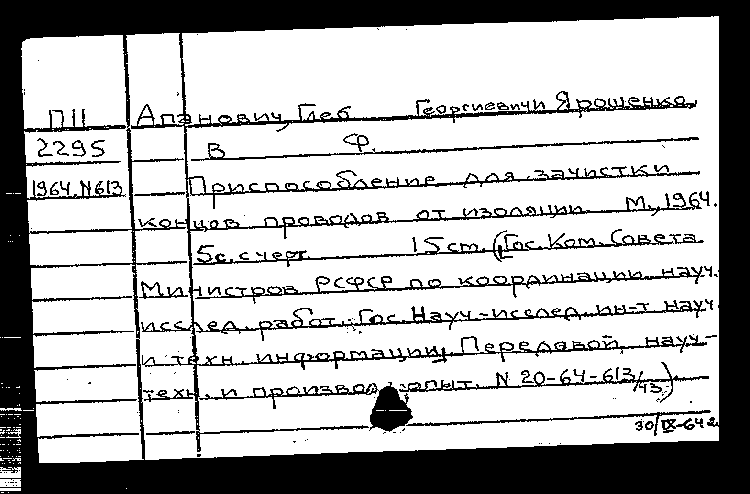 П11 Апанович, Глеб Георгиевич и Ярошенко,
2295 В Ф.
1964.N613 Приспособление для зачистки
концов проводов от изоляции. М., 1964.
5с. с черт. 15 см. (Гос. Ком. Совета
Министров РСФСР по координации науч.
исслед. работ. Гос. Науч.-исслед. ин-т науч.
и техн. информации. Передовой науч.-
техн. и производ. опыт. N 20-64-613/43)
30/IX-64г